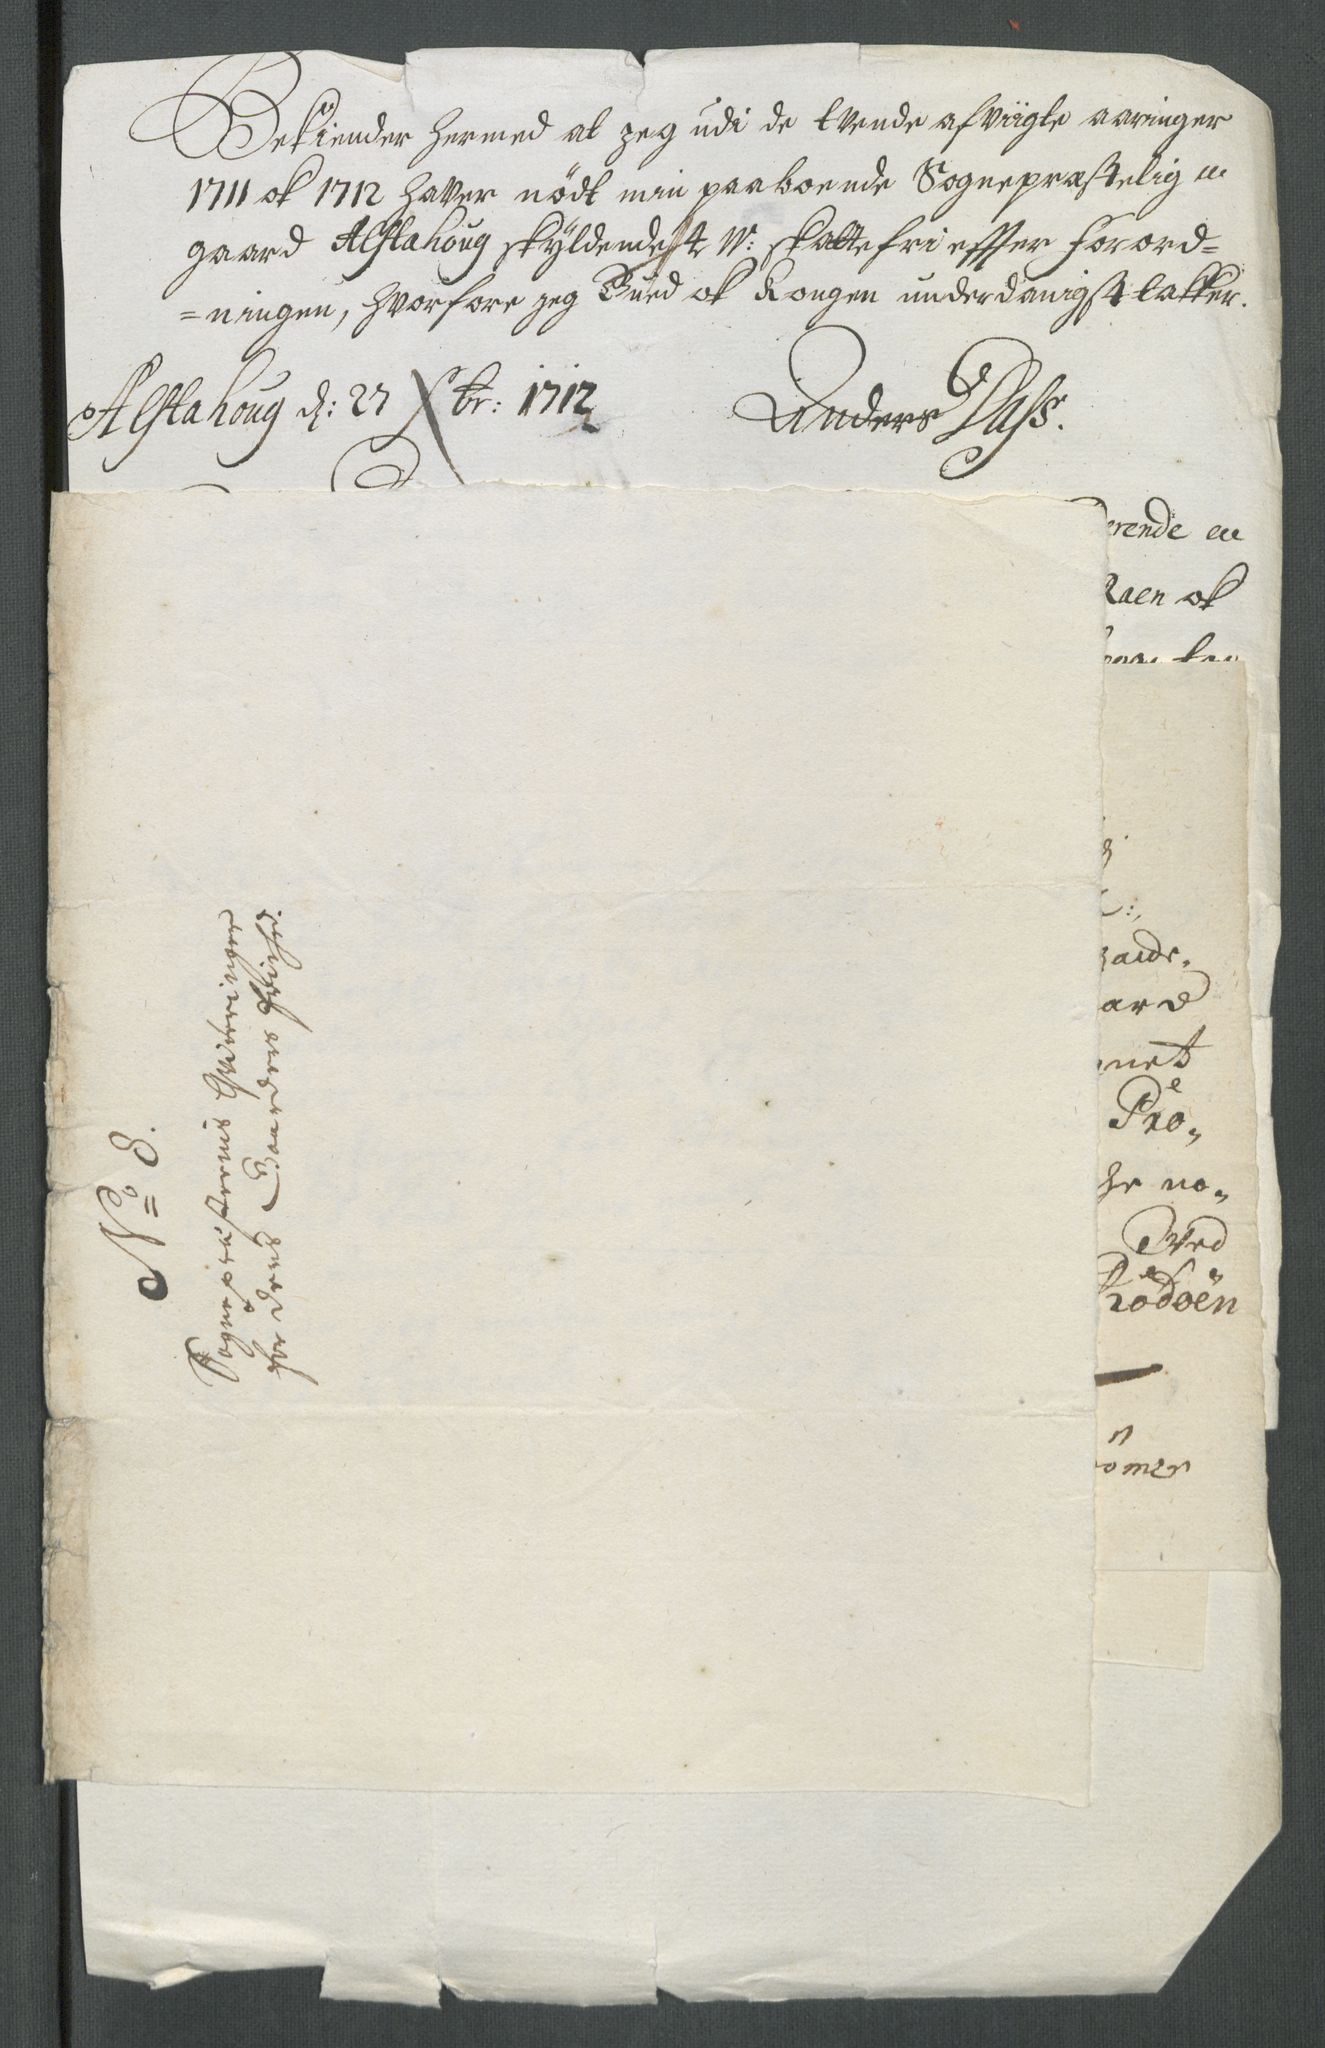 Bekiender hermed at jeg udi de tvende afviigte aaringer
1711 ok 1712 haver nödt min paaboende Sognepræstelig
gaard Alstahoug skyldende W: skattefri effter Forord=
=ningen, hvorfore jeg Gued ok Kongen underdanigst takker.
Alstahoug d: 27 Xbr: 1712
Anders Dass.
erende
Raen ok
aard
Pro,
no,
Ved
Rödöen
N=o 8.
Sognepræsternis
for deris Gaarders